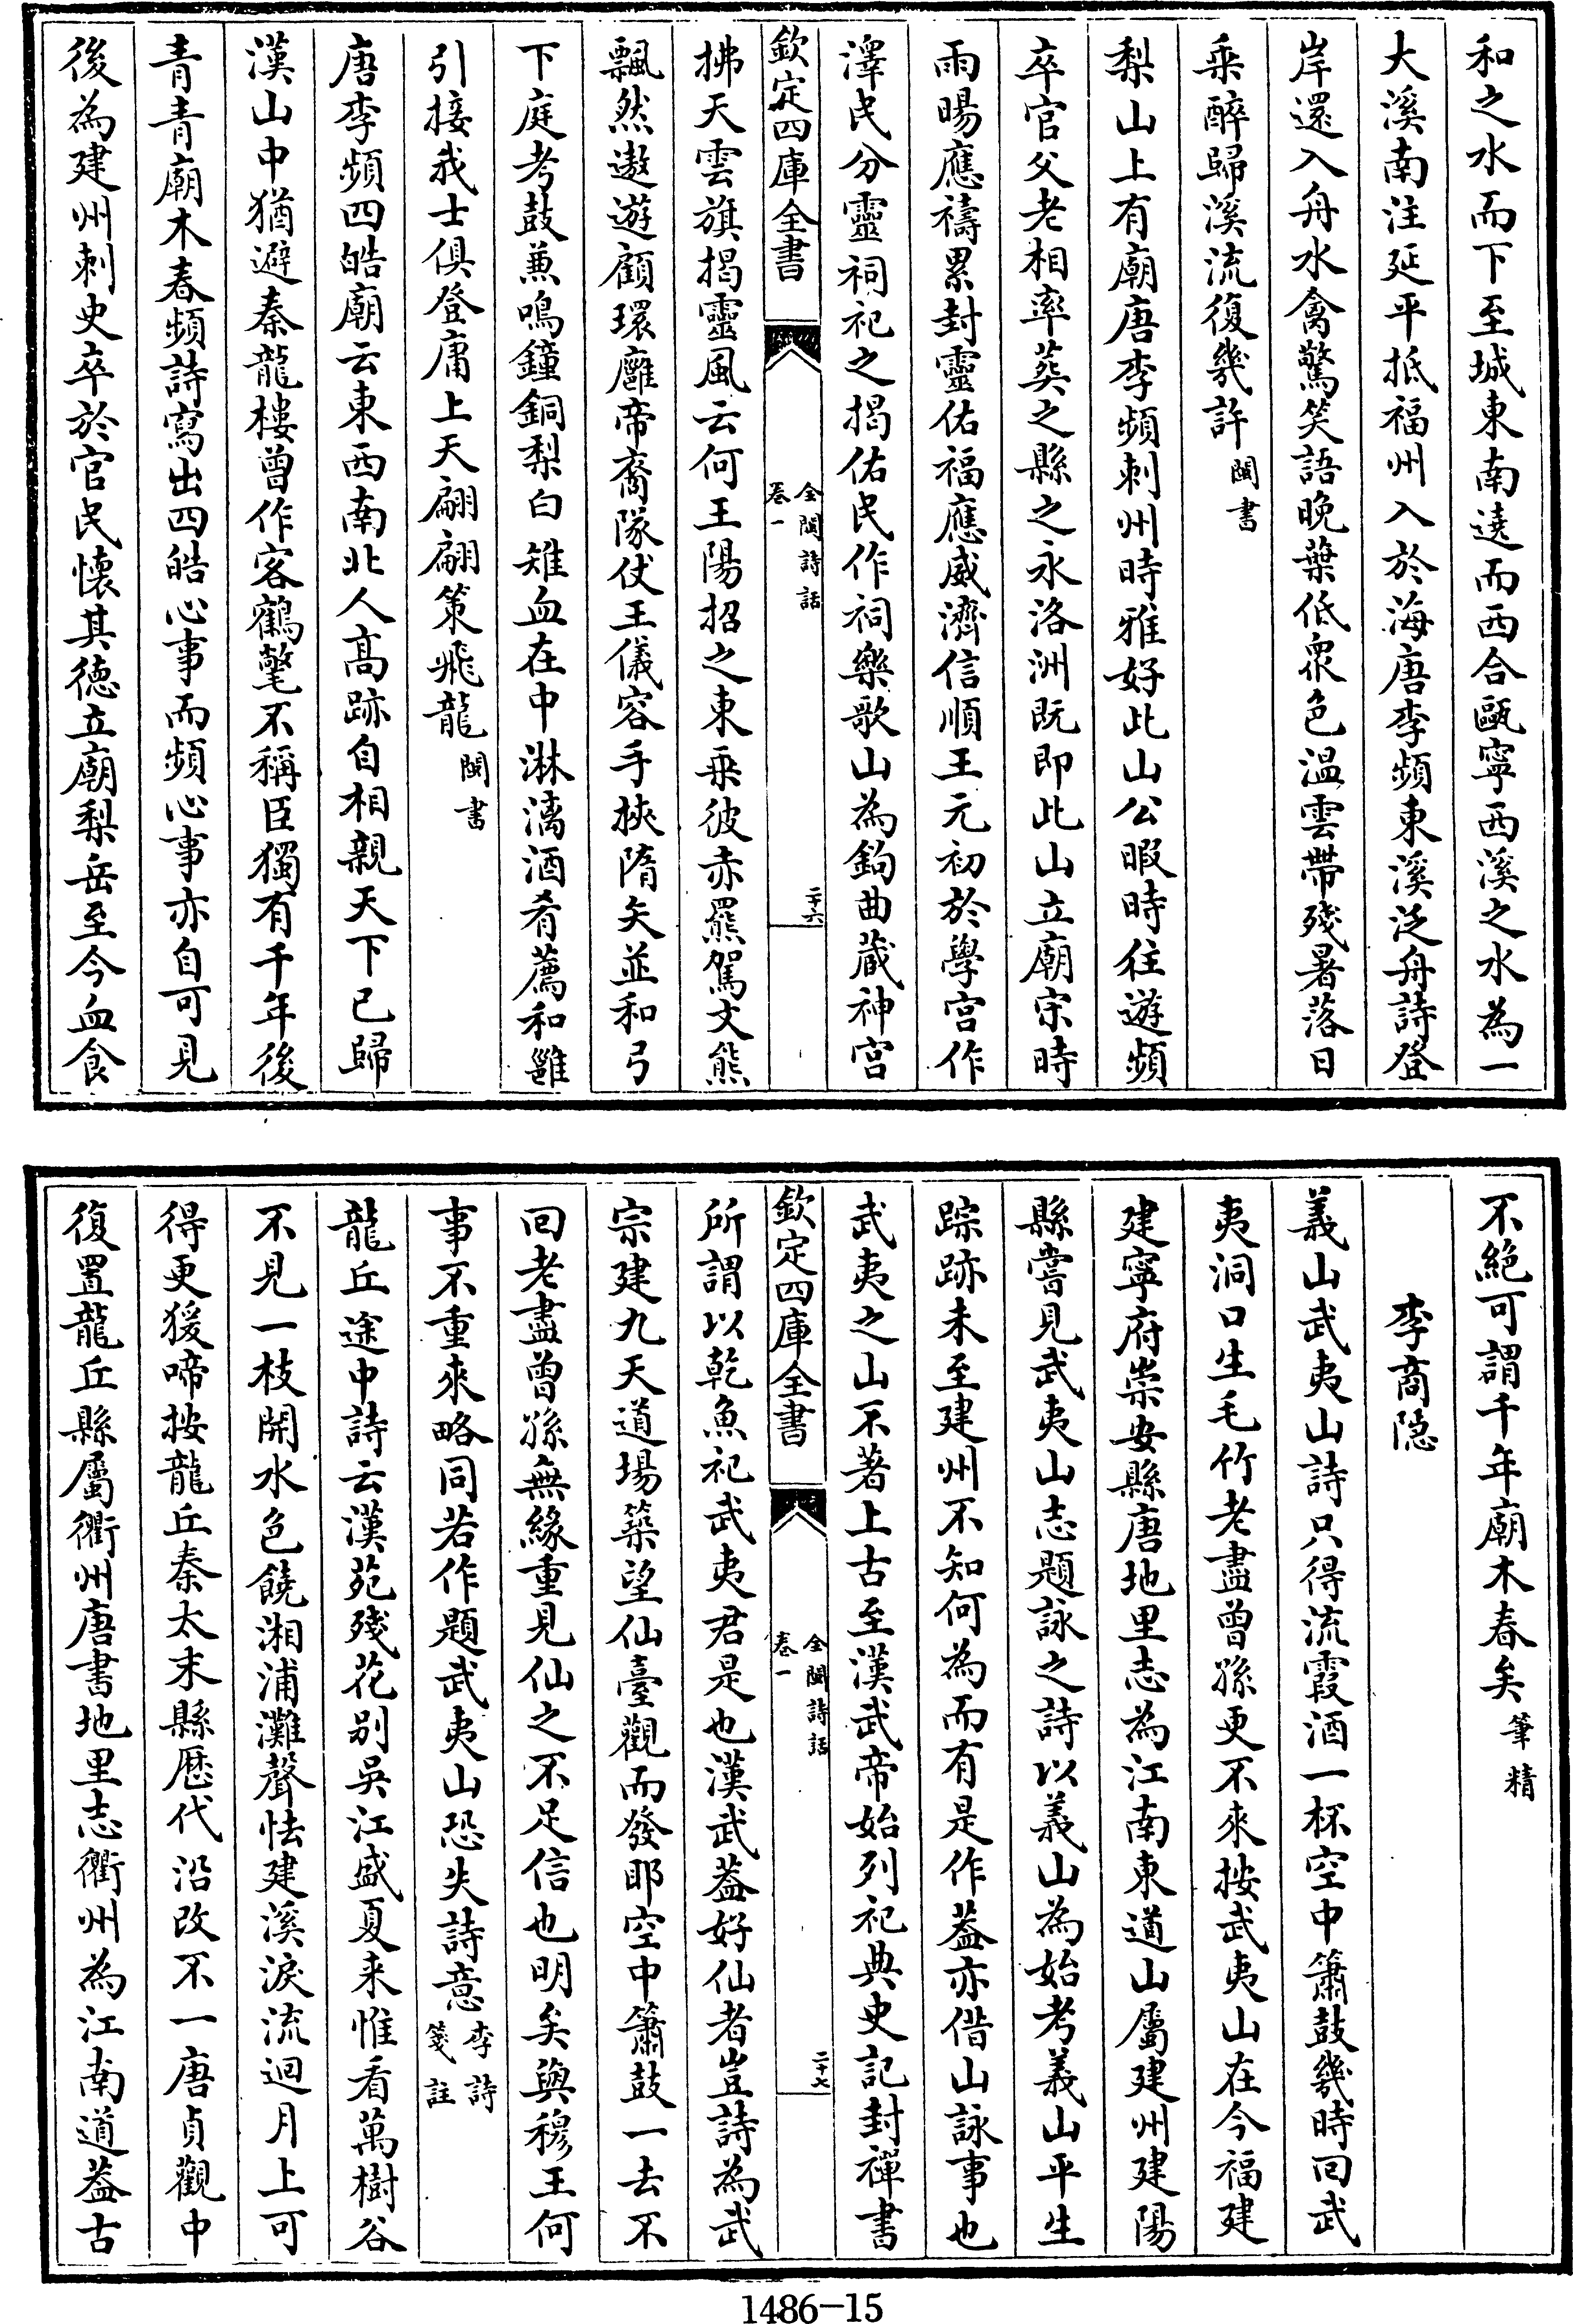 和之水而下至城東南遶而西合甌寧西溪之水為一
大溪南注延平抵福州入於海唐李頻東溪泛舟詩登
岸還入舟水禽驚笑語晚葉低衆色温雲帶殘暑落日
乘醉歸溪流復幾許閩書
梨山上有廟唐李頻刺州時雅好此山公暇時往遊頻
卒官父老相率葬之縣之永洛洲既即此山立廟宋時
雨暘應禱累封靈佑福應威濟信順王元初於學宫作
澤民分靈祠祀之揭佑民作祠樂歌山為鈎曲蔵神宫
欽定四庫全書
全閩詩話
卷一
二十六
拂天雲旗揭靈風云何王陽招之東乗彼赤羆駕文熊
飄然遨遊顧環廱帝裔隊仗王儀容手挾隋矢並和弓
下庭考鼓兼鳴鐘銅梨白雉血在中淋漓酒肴薦和雝
引接我士俱登庸上天翩翩策飛龍閩書
唐李頻四皓廟云東西南北人髙跡自相親天下已歸
漢山中猶避秦龍樓曾作客鶴氅不稱臣獨有千年後
青青廟木春頻詩寫出四皓心事而頻心事亦自可見
後為建州刺史卒於官民懷其徳立廟梨岳至今血食
不絶可謂千年廟木春矣筆精
李商隠
義山武夷山詩只得流霞酒一杯空中簫鼓幾時回武
夷洞口生毛竹老盡曾孫更不來按武夷山在今福建
建寧府崇安縣唐地里志為江南東道山屬建州建陽
縣嘗見武夷山志題詠之詩以義山為始考義山平生
踪跡未至建州不知何為而有是作葢亦借山詠事也
武夷之山不著上古至漢武帝始列祀典史記封禪書
欽定四庫全書
全閩詩話
卷一
二十七
所謂以乾魚祀武夷君是也漢武葢好仙者豈詩為武
宗建九天道場築望仙臺觀而發耶空中簫鼓一去不
回老盡曾孫無緣重見仙之不足信也明矣與穆王何
事不重來略同若作題武夷山恐失詩意李詩箋註
龍丘途中詩云漢苑殘花别吳江盛夏来惟看萬樹谷
不見一枝開水色饒湘浦灘聲怯建溪淚流迴月上可
得更猨啼按龍丘秦太末縣歴代沿改不一唐貞觀中
復置龍丘縣屬衢州唐書地里志衢州為江南道葢古
1486-15